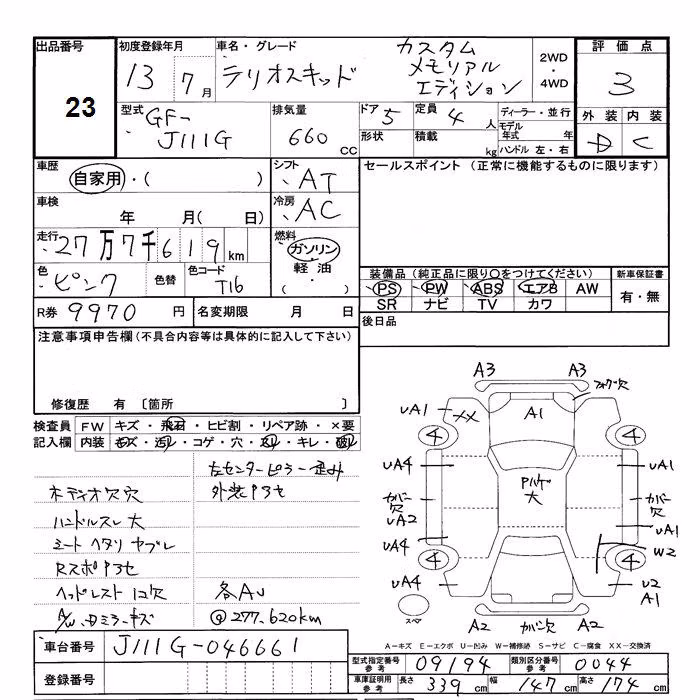 出品番号
23
初度登録年月
13 7月
車名・グレード
テリオスキッド
カスタム
メモリアル
エディション
2WD
・
4WD
評価点
3
外装 内装
D C
型式
GF-
J111G
排気量
660 cc
ドア 5
形状
定員 4 人
積載 kg
ディーラー・並行
モデル
年式 年
ハンドル 左・右
車歴
自家用・( )
シフト
AT
セールスポイント (正常に機能するものに限ります)
車検
年 月( 日)
冷房
AC
走行
27万7千619km
燃料
ガソリン
軽油
・( )
色
ピンク
色替
色コード
T16
装備品 (純正品に限り○をつけてください)
PS PW ABS エアB AW
SR ナビ TV カワ
新車保証書
有・無
R券 9970 円
名変期限 月 日
後日品
注意事項申告欄 (不具合内容等は具体的に記入して下さい)
修復歴 有 〔箇所 〕
検査員
記入欄
FW キズ・飛石・ヒビ割・リペア跡・×要
内装 キズ・汚レ・コゲ・穴・スレ・キレ・破レ
左センターピラー歪み
オーディオ欠穴
外装色アセ
ハンドルスレ大
シートヘタリ ヤブレ
Rスポ色アセ
ヘッドレスト1コ欠
各AU
@277.620km
A3 A3
フォグ欠
UA1 XX A1
4 4
UA4 UA1
カバー欠
UA2
大
カバー欠
UA1
UA4 W2
4 4
UA4 U2
A1
スペア
A2 カバー欠 A2
A-キズ E-エクボ U-凹み W-補修跡 S-サビ C-腐食 XX-交換済
車台番号 J111G-046661
登録番号
型式指定番号
参考
09194
類別区分番号
参考
0044
車庫証明用
参考
長さ 339 cm 幅 147 cm 高さ 174 cm